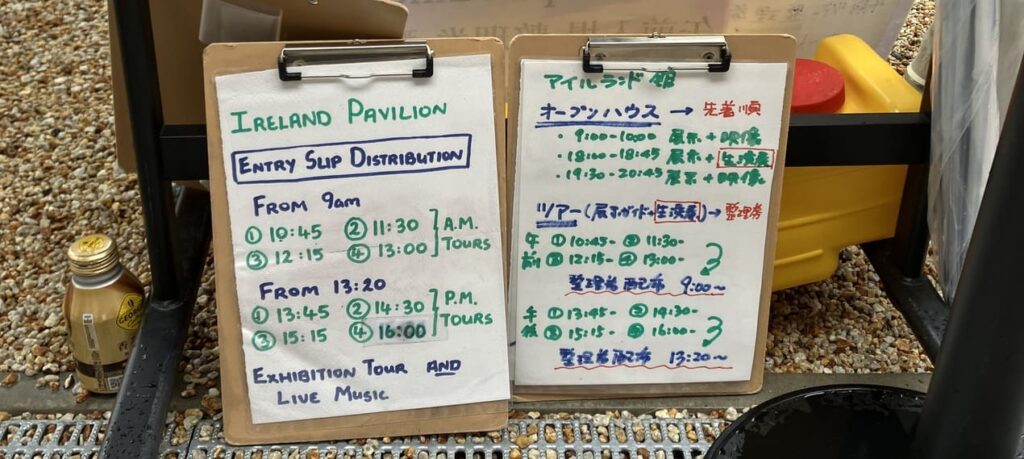 IRELAND PAVILION
ENTRY SLIP DISTRIBUTION
FROM 9am
① 10:45 ② 11:30
③ 12:15 ④ 13:00
A.M. TOURS
FROM 13:20
① 13:45 ② 14:30
③ 15:15 ④ 16:00
P.M. TOURS
EXHIBITION TOUR AND
LIVE MUSIC
アイルランド館
オープンハウス → 先着順
・9:00-10:00 展示+映像
・18:00-18:45 展示+生演奏
・19:30-20:45 展示+映像
ツアー(展示ガイド+生演奏)→整理券
午前 ① 10:45- ② 11:30-
③ 12:15- ④ 13:00-
整理券配布 9:00~
午後 ① 13:45- ② 14:30-
③ 15:15- ④ 16:00-
整理券配布 13:20~
GEORGIA